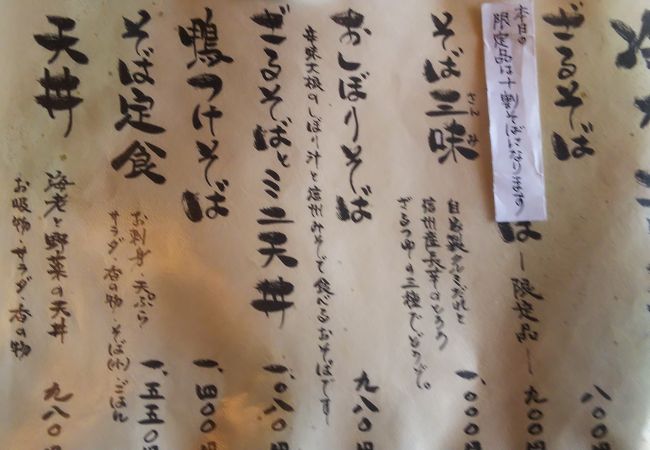 ざるそば
八〇〇
本日の
限定品は十割そばになります
ば
―限定品―
九〇〇円
そば三味
さんみ
自家製クルミだれと
信州産長芋のとろろ
ざるつゆの三種でどうぞ。
一、〇〇〇円
おしぼりそば
辛味大根のしぼり汁と信州みそで食べるおそばです―
九八〇円
ざるそばとミニ天丼
一、〇八〇円
鴨つけそば
一、四〇〇円
そば定食
お刺身・天ぷら
サラダ・香の物・そば(小)ごはん
一、五五〇円
天丼
海老と野菜の天丼
お吸物・サラダ・香の物
九八〇円